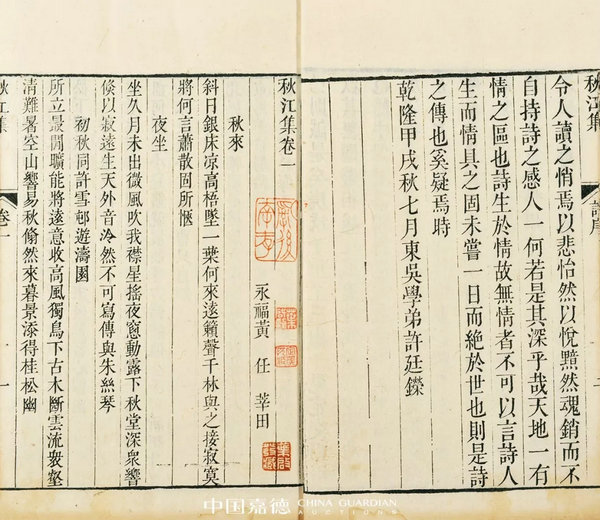 秋江集
詩序
令人讀之悄焉以悲怡然以悅黯然魂銷而不
自持詩之感人一何若是其深乎哉天地一有
情之區也詩生於情故無情者不可以言詩人
生而情具之固未嘗一日而絕於世也則是詩
之傳也奚疑焉時
乾隆甲戌秋七月東吳學弟許廷鑅
秋江集卷一
永福黃任莘田
秋來
斜日銀床凉高梧墜一葉何來遠籟聲千林與之接寂寞
將何言蕭散固所愜
夜坐
坐久月未出微風吹我襟星搖夜窗動露下秋堂深衆響
倐以寂遠生天外音泠然不可寫傳與朱絲琴
初秋同許雪邨遊濤園
所立最閒曠能將遠意收高風獨鳥下古木斷雲流衆壑
清難暑空山響易秋翛然來暮景添得桂松幽
秋江集
卷一
一
中国嘉德 CHINA GUARDIAN
AUCTIONS